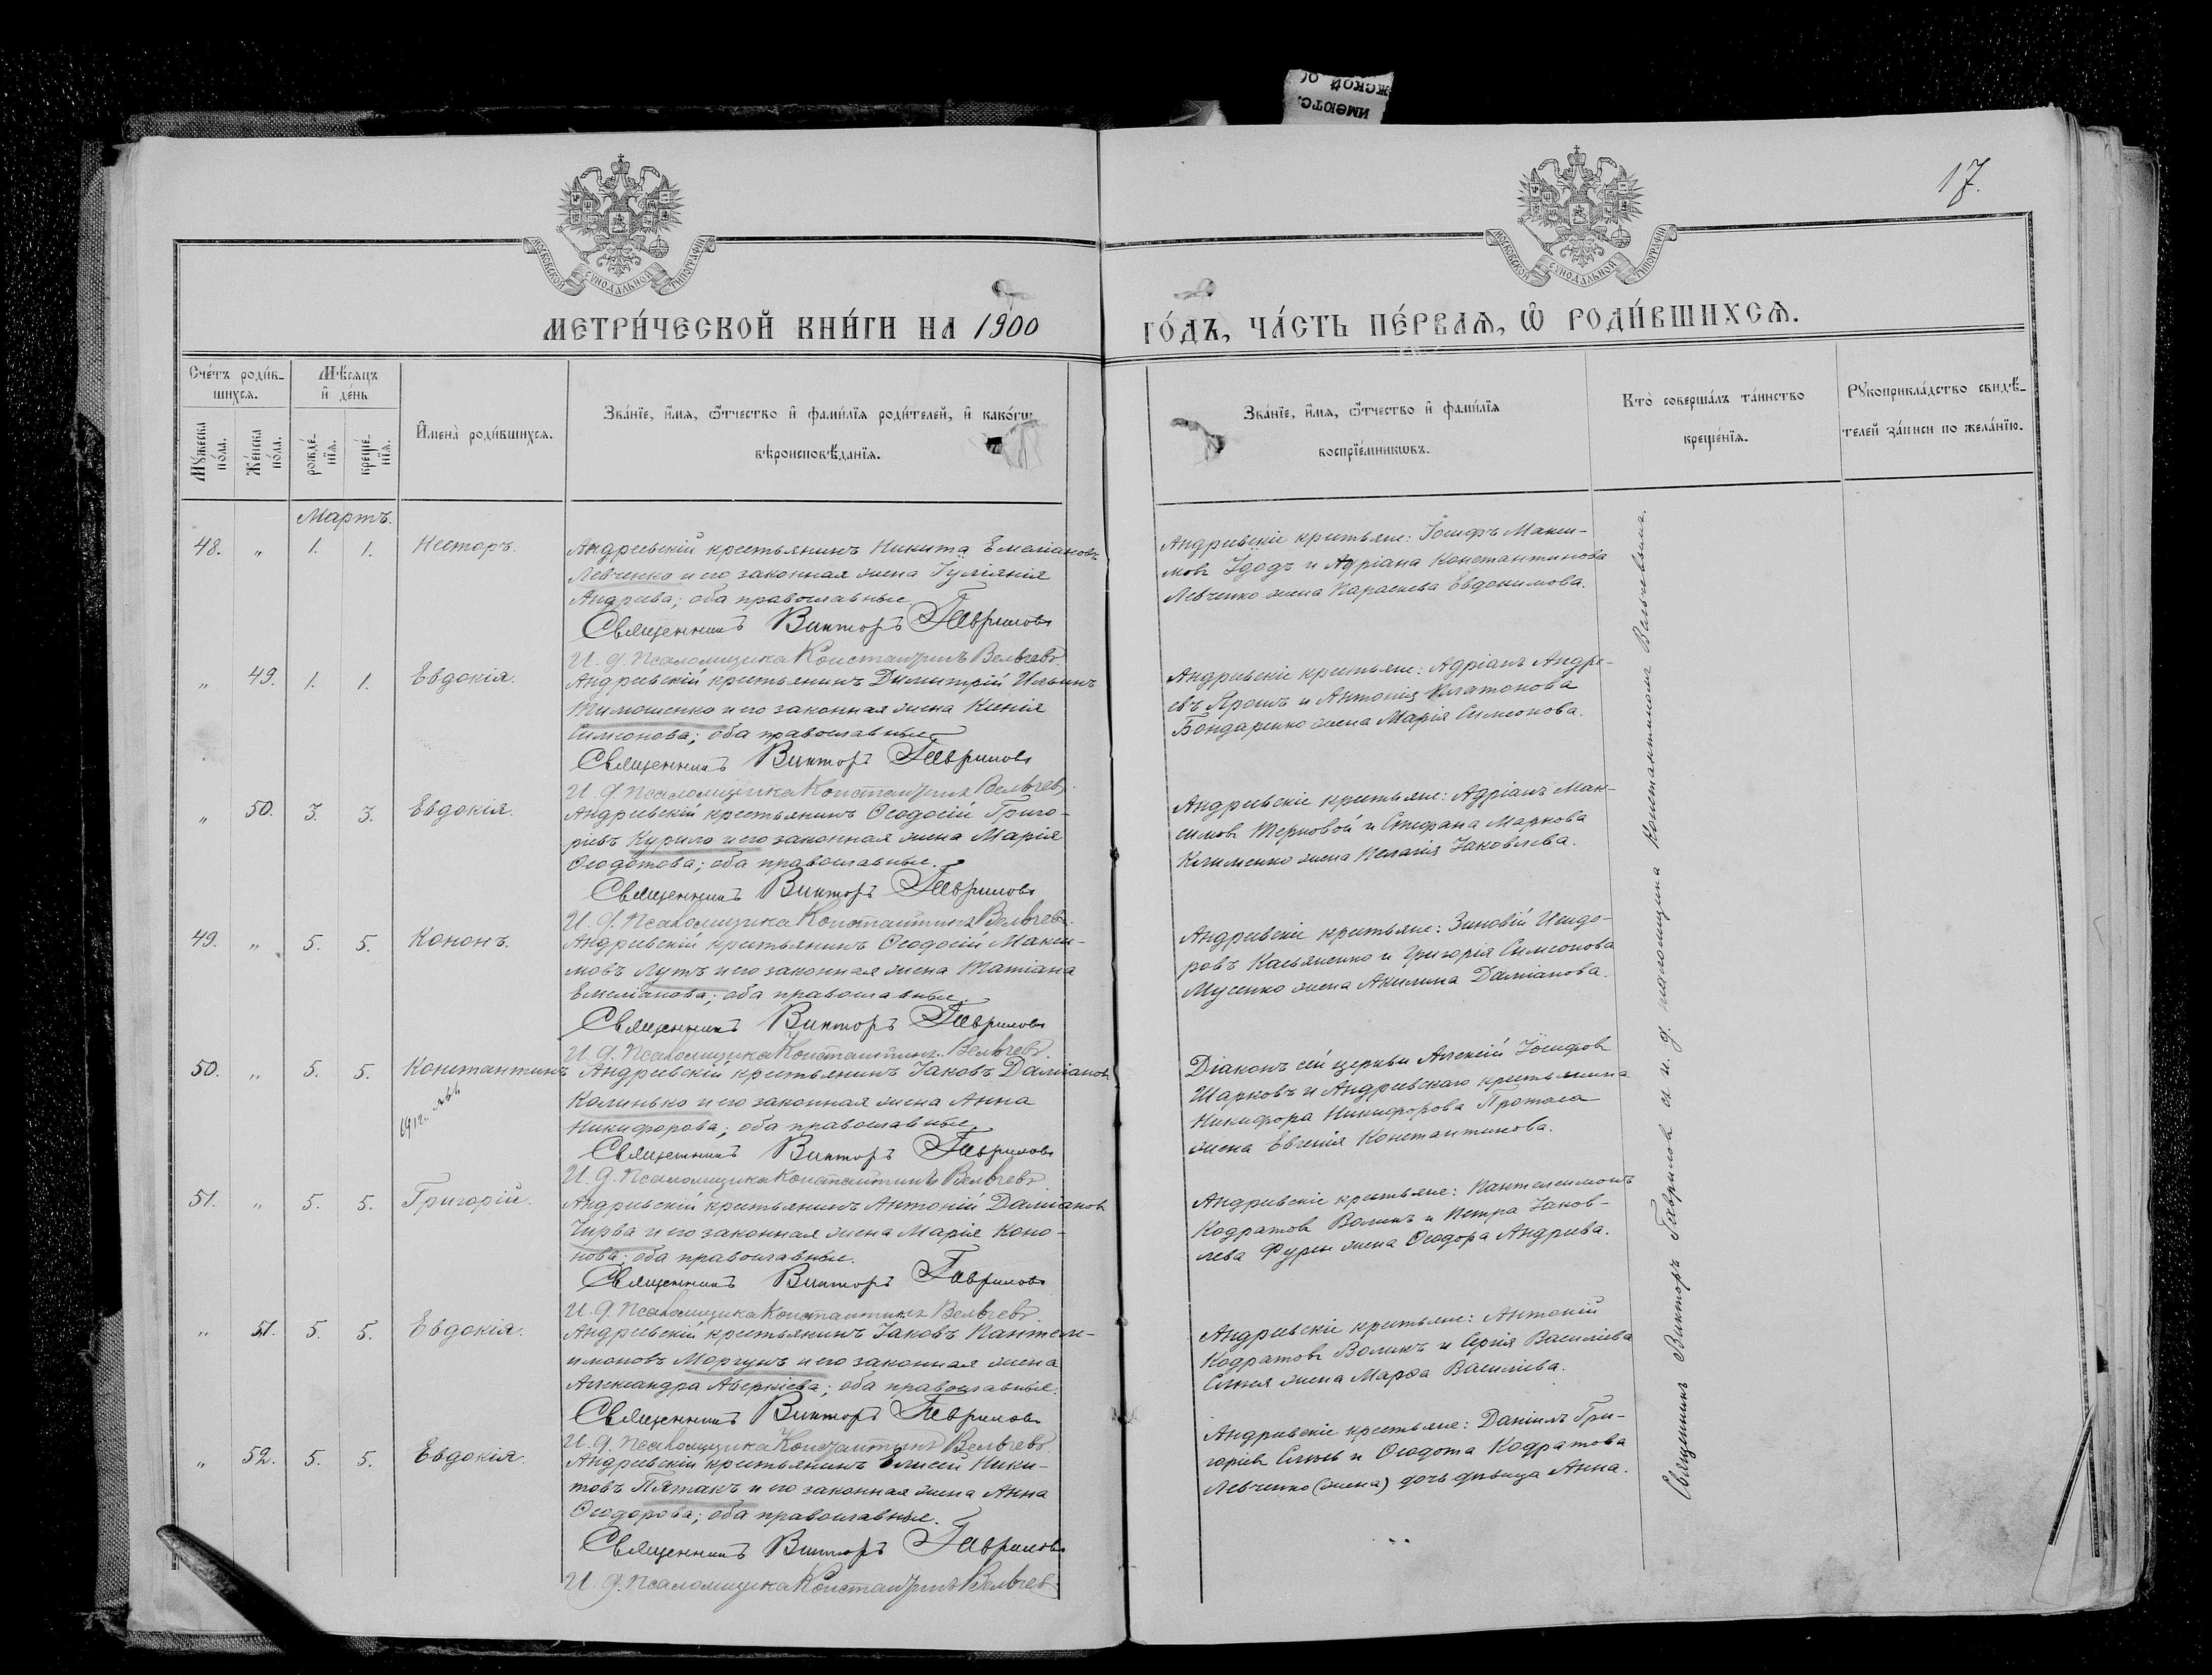 17.
МЕТРИ́ЧЕСКОЙ КНИ́ГИ НА 1900
ГО́ДЪ, ЧА́СТЬ ПЕ́РВАЯ, Ѡ РОДИ́ВШИХСЯ.
Счётъ роди́в-
шихся.
Мѣсяцъ
и де́нь
Мꙋ́жеска по́ла.
Же́нска по́ла.
рожде́-
нїя.
креще́-
нїя.
Имена̀ роди́вшихся.
Зва́нїе, и́мя, ѻ́тчество и фами́лїя роди́телей, и како́гѡ
вѣроисповѣ́данїя.
Зва́нїе, и́мя, ѻ́тчество и фами́лїя
воспрїе́мникѡвъ.
Кто̀ соверша́лъ та́инство
креще́нїя.
Рꙋкоприкла́дство свидѣ́-
телей за́писи по жела́нїю.
Мартъ.
48. „ 1. 1. Несторъ.
Андреевскій крестьянинъ Никита Емеліановъ
Левченко и его законная жена Іуліанія
Андреева; оба православные.
Священникъ Викторъ Гавриловъ
И. д. псаломщика Константинъ Вельчевъ.
Андреевскіе крестьяне: Іосифъ Макси-
мовъ Удодъ и Адріана Константинова
Левченко жена Параскева Евдокимова.
„ 49. 1. 1. Евдокія.
Андреевскій крестьянинъ Димитрій Ильинъ
Тимошенко и его законная жена Ксенія
Симеонова; оба православные
Священникъ Викторъ Гавриловъ
И. д. псаломщика Константинъ Вельчевъ.
Андреевскіе крестьяне: Адріанъ Андре-
евъ Ярошъ и Антонія Платонова
Бондаренко жена Марія Симеонова.
„ 50. 3. 3. Евдокія.
Андреевскій крестьянинъ Ѳеодосій Григо-
ріевъ Курило и его законная жена Марія
Ѳеодотова; оба православные.
Священникъ Викторъ Гавриловъ
И. д. псаломщика Константинъ Вельчевъ.
Андреевскіе крестьяне: Адріанъ Мак-
симовъ Терновой и Стефана Маркова
Клименко жена Пелагія Іаковлева.
49. „ 5. 5. Кононъ.
Андреевскій крестьянинъ Ѳеодосій Макси-
мовъ Лутъ и его законная жена Татіана
Емеліанова; оба православные.
Священникъ Викторъ Гавриловъ
И. д. псаломщика Константинъ Вельчевъ.
Андреевскіе крестьяне: Зиновій Исидо-
ровъ Касьяненко и Григорія Симеонова
Мусенко жена Акилина Даміанова.
50. „ 5. 5. Константинъ
Андреевскій крестьянинъ Іаковъ Даміановъ
Калинько и его законная жена Анна
Никифорова; оба православные.
Священникъ Викторъ Гавриловъ
И. д. псаломщика Константинъ Вельчевъ.
Діаконъ сей церкви Алексій Іосифовъ
Шарковъ и Андреевскаго крестьянина
Никифора Никифорова Протаса
жена Евгенія Константинова.
51. „ 5. 5. Григорій.
Андреевскій крестьянинъ Антоній Даміановъ
Чирва и его законная жена Марія Коно-
нова; оба православные.
Священникъ Викторъ Гавриловъ
И. д. псаломщика Константинъ Вельчевъ.
Андреевскіе крестьяне: Пантелеимонъ
Кодратовъ Воликъ и Петра Іаков-
лева Фурсы жена Ѳеодора Андреева.
„ 51. 5. 5. Евдокія.
Андреевскій крестьянинъ Іаковъ Пантеле-
имоновъ Моргунъ и его законная жена
Александра Аверкіева; оба православные.
Священникъ Викторъ Гавриловъ
И. д. псаломщика Константинъ Вельчевъ.
Андреевскіе крестьяне: Антоній
Кодратовъ Воликъ и Сергія Василіева
жена Марѳа Василіева.
„ 52. 5. 5. Евдокія.
Андреевскій крестьянинъ Елисей Ники-
товъ Пятакъ и его законная жена Анна
Ѳеодорова; оба православные.
Священникъ Викторъ Гавриловъ
И. д. псаломщика Константинъ Вельчевъ
Андреевскіе крестьяне: Даніилъ Гри-
горіевъ и Ѳеодота Кодратова
Левченко (жена) дочь дѣвица Анна.
Священникъ Викторъ Гавриловъ съ и. д. псаломщика Константиномъ Вельчевымъ.